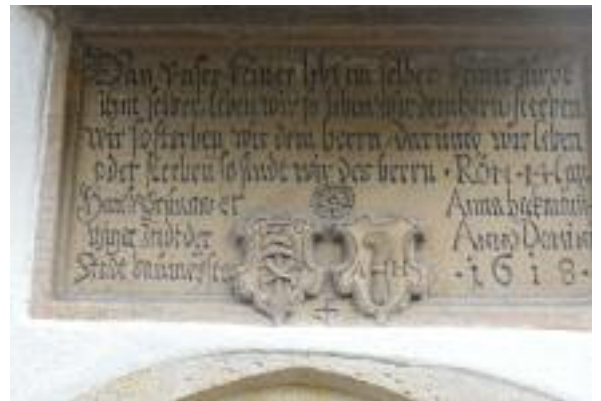 Dan Unser Keiner lebt im selber Keiner stirbt
ihm selber leben wir so leben wir dem hern sterben
wir so sterben wir dem herrn Darumb wir leben
oder sterben so sindt wir des herrn · RÖM · 14 Cap
Hans er
Anna
der
Anno Domini
Stadt baumeyster
· 1 6 1 8 ·
A H H